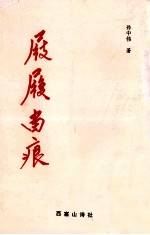 屐履留痕
孙中伟 著
西塞山诗社